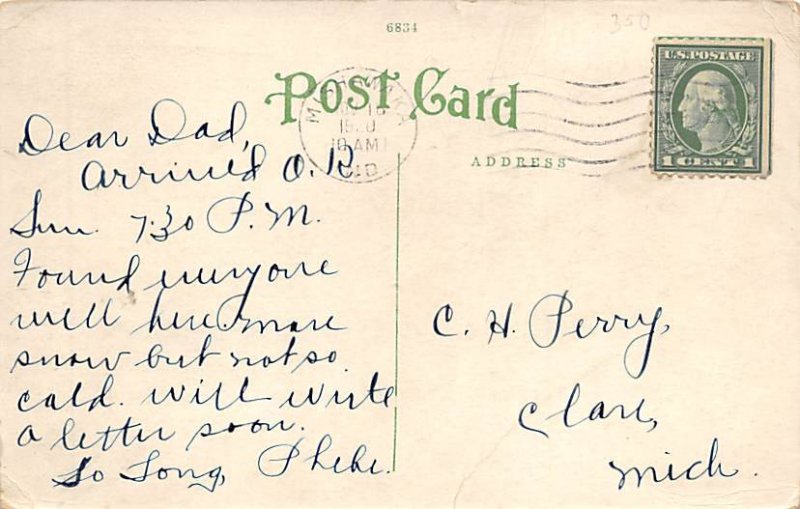 6834
350
Post Card
ADDRESS
MISHAWAKA
16
1920
10 AM
IND
U.S. POSTAGE
1 CENT 1
Dear Dad,
Arrived O.K
Sun. 7:30 P.M.
Found everyone
well here. more
snow but not so
cold. will write
a letter soon.
So Long, Phebe.
C. H. Perry,
Clare,
Mich.